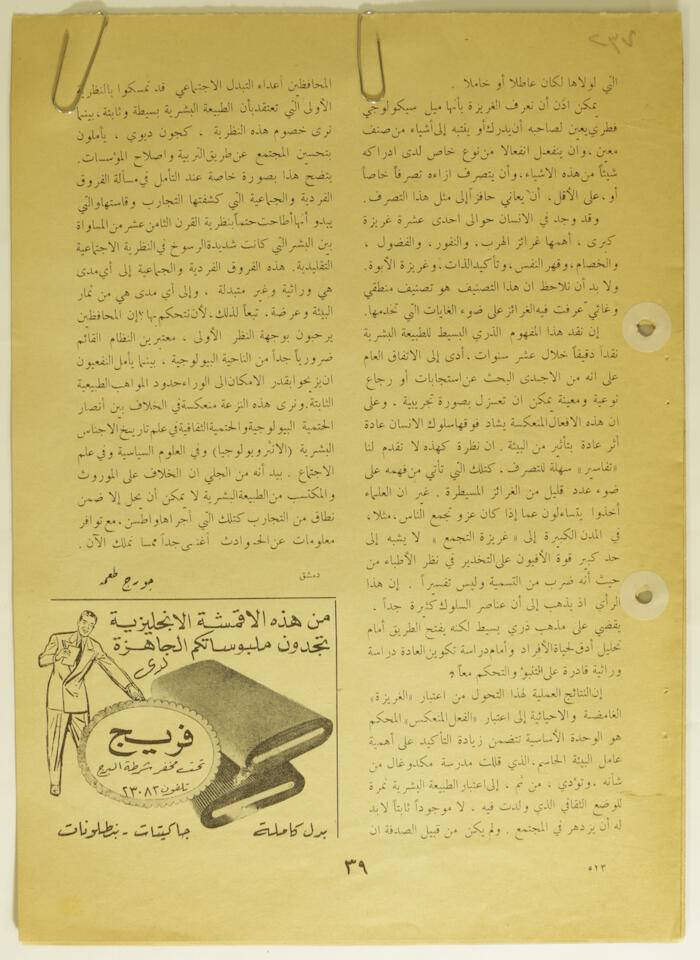 التي لولاها لكان عاطلا أو خاملا .
يمكن اذن أن نعرف الغريزة بأنها ميل سيكولوجي
فطري يعين لصاحبه أن يدرك أو ينتبه إلى أشياء من صنف
معين ، وان ينفعل انفعالا من نوع خاص لدى ادراكه
شيئاً من هذه الاشياء ، وأن يتصرف ازاءه تصرفاً خاصاً
أو ، على الأقل ، أن يعاني حافزاً إلى مثل هذا التصرف .
وقد وجد في الانسان حوالى احدى عشرة غريزة
كبرى ، أهمها غرائز الهرب ، والنفور ، والفضول ،
والخصام ، وقهر النفس ، وتأكيد الذات ، وغريزة الأبوة .
ولا بد أن نلاحظ ان هذا التصنيف هو تصنيف منطقي
وغائي عرفت فيه الغرائز على ضوء الغايات التي تخدمها .
إن نقد هذا المفهوم الذري البسيط للطبيعة البشرية
نقداً دقيقاً خلال عشر سنوات ، أدى إلى الاتفاق العام
على انه من الاجدى البحث عن استجابات أو رجاع
نوعية ومعينة يمكن ان تعزل بصورة تجريبية . وعلى
ان هذه الافعال المنعكسة يشاد فوقها سلوك الانسان عادة
أثر عادة بتأثير من البيئة . ان نظرة كهذه لا تقدم لنا
«تفاسير» سهلة للتصرف ، كتلك التي تأتي من فهمه على
ضوء عدد قليل من الغرائز المسيطرة . غير ان العلماء
أخذوا يتساءلون عما إذا كان عزو تجمع الناس ، مثلا ،
في المدن الكبيرة إلى « غريزة التجمع » لا يشبه إلى
حد كبير قوة الأفيون على التخدير في نظر الأطباء من
حيث أنه ضرب من التسمية وليس تفسيراً . إن هذا
الرأي اذ يذهب إلى أن عناصر السلوك كثيرة جداً .
يقضي على مذهب ذري بسيط لكنه يفتح الطريق أمام
تحليل أدق لحياة الأفراد وأمام دراسة تكوين العادة دراسة
وراثية قادرة على التنبؤ والتحكم معاً ؟
إن النتائج العملية لهذا التحول من اعتبار «الغريزة»
الغامضة والاحيائية إلى اعتبار «الفعل المنعكس» المحكم
هو الوحدة الأساسية تتضمن زيادة التأكيد على أهمية
عامل البيئة الحاسم ، الذي قللت مدرسة مكدوغال من
شأنه . وتؤدي ، من ثم ، إلى اعتبار الطبيعة البشرية ثمرة
للوضع الثقافي الذي ولدت فيه ، لا موجوداً ثابتاً لابد
له أن يزدهر في المجتمع . ولم يكن من قبيل الصدفة ان
المحافظين أعداء التبدل الاجتماعي قد تمسكوا بالنظرية
الأولى التي تعتقد بأن الطبيعة البشرية بسيطة وثابتة ، بينما
نرى خصوم هذه النظرية ، كجون ديوي ، يأملون
بتحسين المجتمع عن طريق التربية واصلاح المؤسسات .
يتضح هذا بصورة خاصة عند التأمل في مسألة الفروق
الفردية والجماعية التي كشفتها التجارب وقاستها والتي
يبدو أنها أطاحت حتماً بنظرية القرن الثامن عشر من المساواة
بين البشر التي كانت شديدة الرسوخ في النظرية الاجتماعية
التقليدية . هذه الفروق الفردية والجماعية إلى أي مدى
هي وراثية وغير متبدلة ، وإلى أي مدى هي من ثمار
البيئة وعرضة ، تبعاً لذلك ، لأن نتحكم بها ؟ إن المحافظين
يرحبون بوجهة النظر الأولى ، معتبرين النظام القائم
ضرورياً جداً من الناحية البيولوجية ، بينما يأمل النفعيون
ان يزيحوا بقدر الامكان الى الوراء حدود المواهب الطبيعية
الثابتة . ونرى هذه النزعة منعكسة في الخلاف بين أنصار
الحتمية البيولوجية والحتمية الثقافية في علم تاريخ الاجناس
البشرية (الانثروبولوجيا) وفي العلوم السياسية وفي علم
الاجتماع . بيد أنه من الجلي ان الخلاف على الموروث
والمكتسب من الطبيعة البشرية لا يمكن أن يحل إلا ضمن
نطاق من التجارب كتلك التي أجراها واطسن ، مع توافر
معلومات عن الحوادث أغنى جداً مما نملك الآن .
دمشق
جورج طعمه
من هذه الاقمشة الانجليزية
تجدون ملبوساتكم الجاهزة
لدى
فريج
تحت مخفر شرطة البرج
تلفون ٢٣٠٨٢
بدل كاملة
جاكيتات - بنطلونات
٣٩
٥٢٣